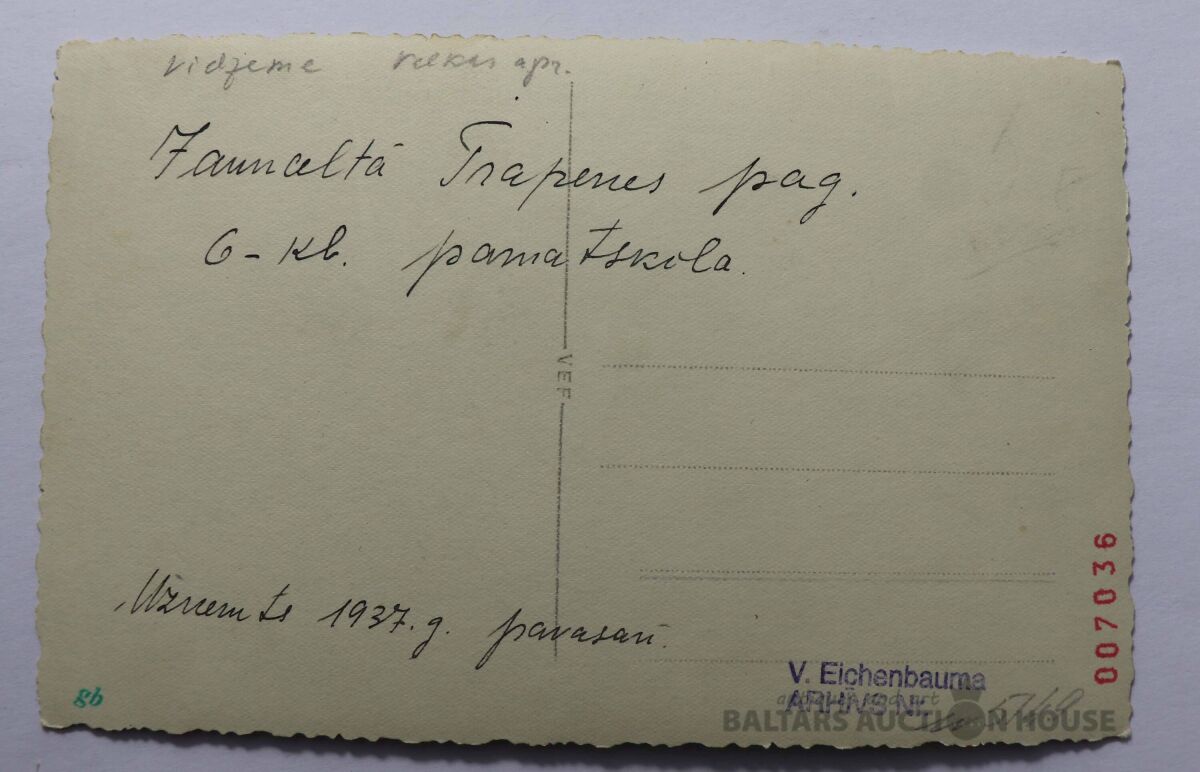 Vidzeme Valkas apr.
Jaunceltā Trapenes pag.
6-kl. pamatskola.
VEF
Uzņemts 1937. g. pavasarī.
007036
V. Eichenbauma
ARHĪVS Nr.
antiques and art
BALTARS AUCTION HOUSE
gb